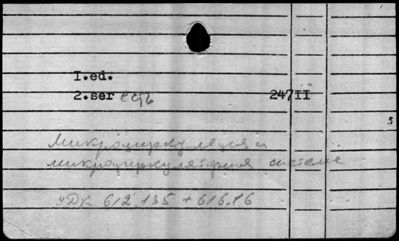 I.ed.
2.ser есть 24711
3
Микроциркуляция и
микроциркуляторная система
УДК 612.135 + 616.16